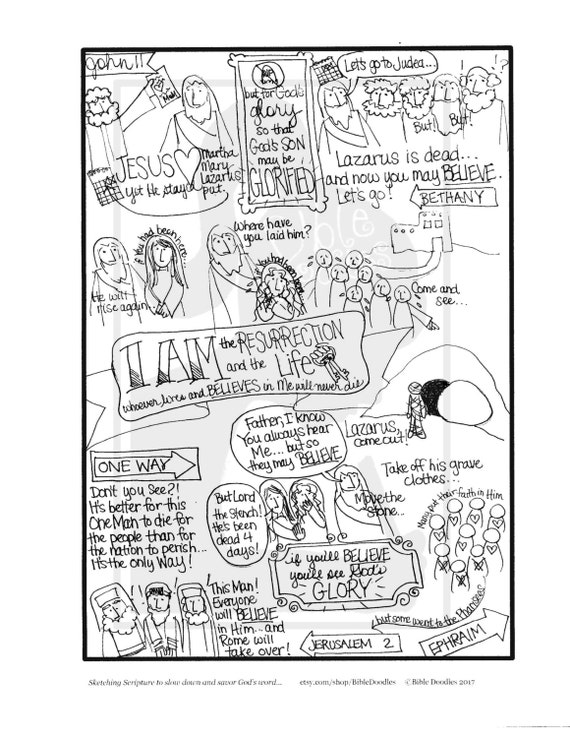 John 11
Mail
JESUS
Martha
Mary
Lazarus
Yet He stayed put.
but for God's
glory
so that
God's SON
may be
GLORIFIED
Let's go to Judea...
But!
But!
Lazarus is dead...
and now you may BELIEVE.
Let's go!
BETHANY
If you had been here...
He will
rise again.
Where have
you laid him?
If you had been here...
Come and
see...
I AM the RESURRECTION
and the
Life
whoever lives and BELIEVES in Me will never die
Father, I know
You always hear
Me... but so
they may BELIEVE
Lazarus,
come out!
ONE WAY
Don't you See?!
It's better for this
One Man to die for
the people than for
the nation to perish...
It's the only Way!
But Lord
the Stench!
He's been
dead 4
days!
Move the
Stone...
Take off his grave
clothes...
Many put their faith in Him
if you'll BELIEVE
you'll see God's
GLORY
This Man!
Everyone
will BELIEVE
in Him... and
Rome will
take over!
but some went to the Pharisees
JERUSALEM 2
EPHRAIM
Sketching Scripture to slow down and savor God's word... etsy.com/shop/BibleDoodles ©Bible Doodles 2017